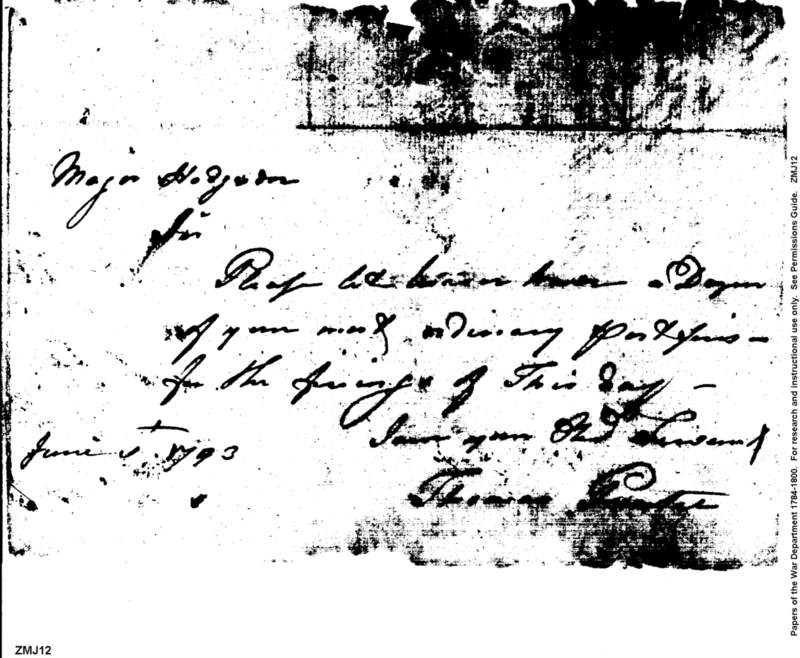 Major Hodgsdon
Sir
Please let bearer have a Dozen
of your most ordinary Portfires
for the firings of This day
June 1st. 1793
I am your Obd Servant
Thomas
Papers of the War Department 1784-1800. For research and instructional use only. See Permissions Guide. ZMJ12
ZMJ12